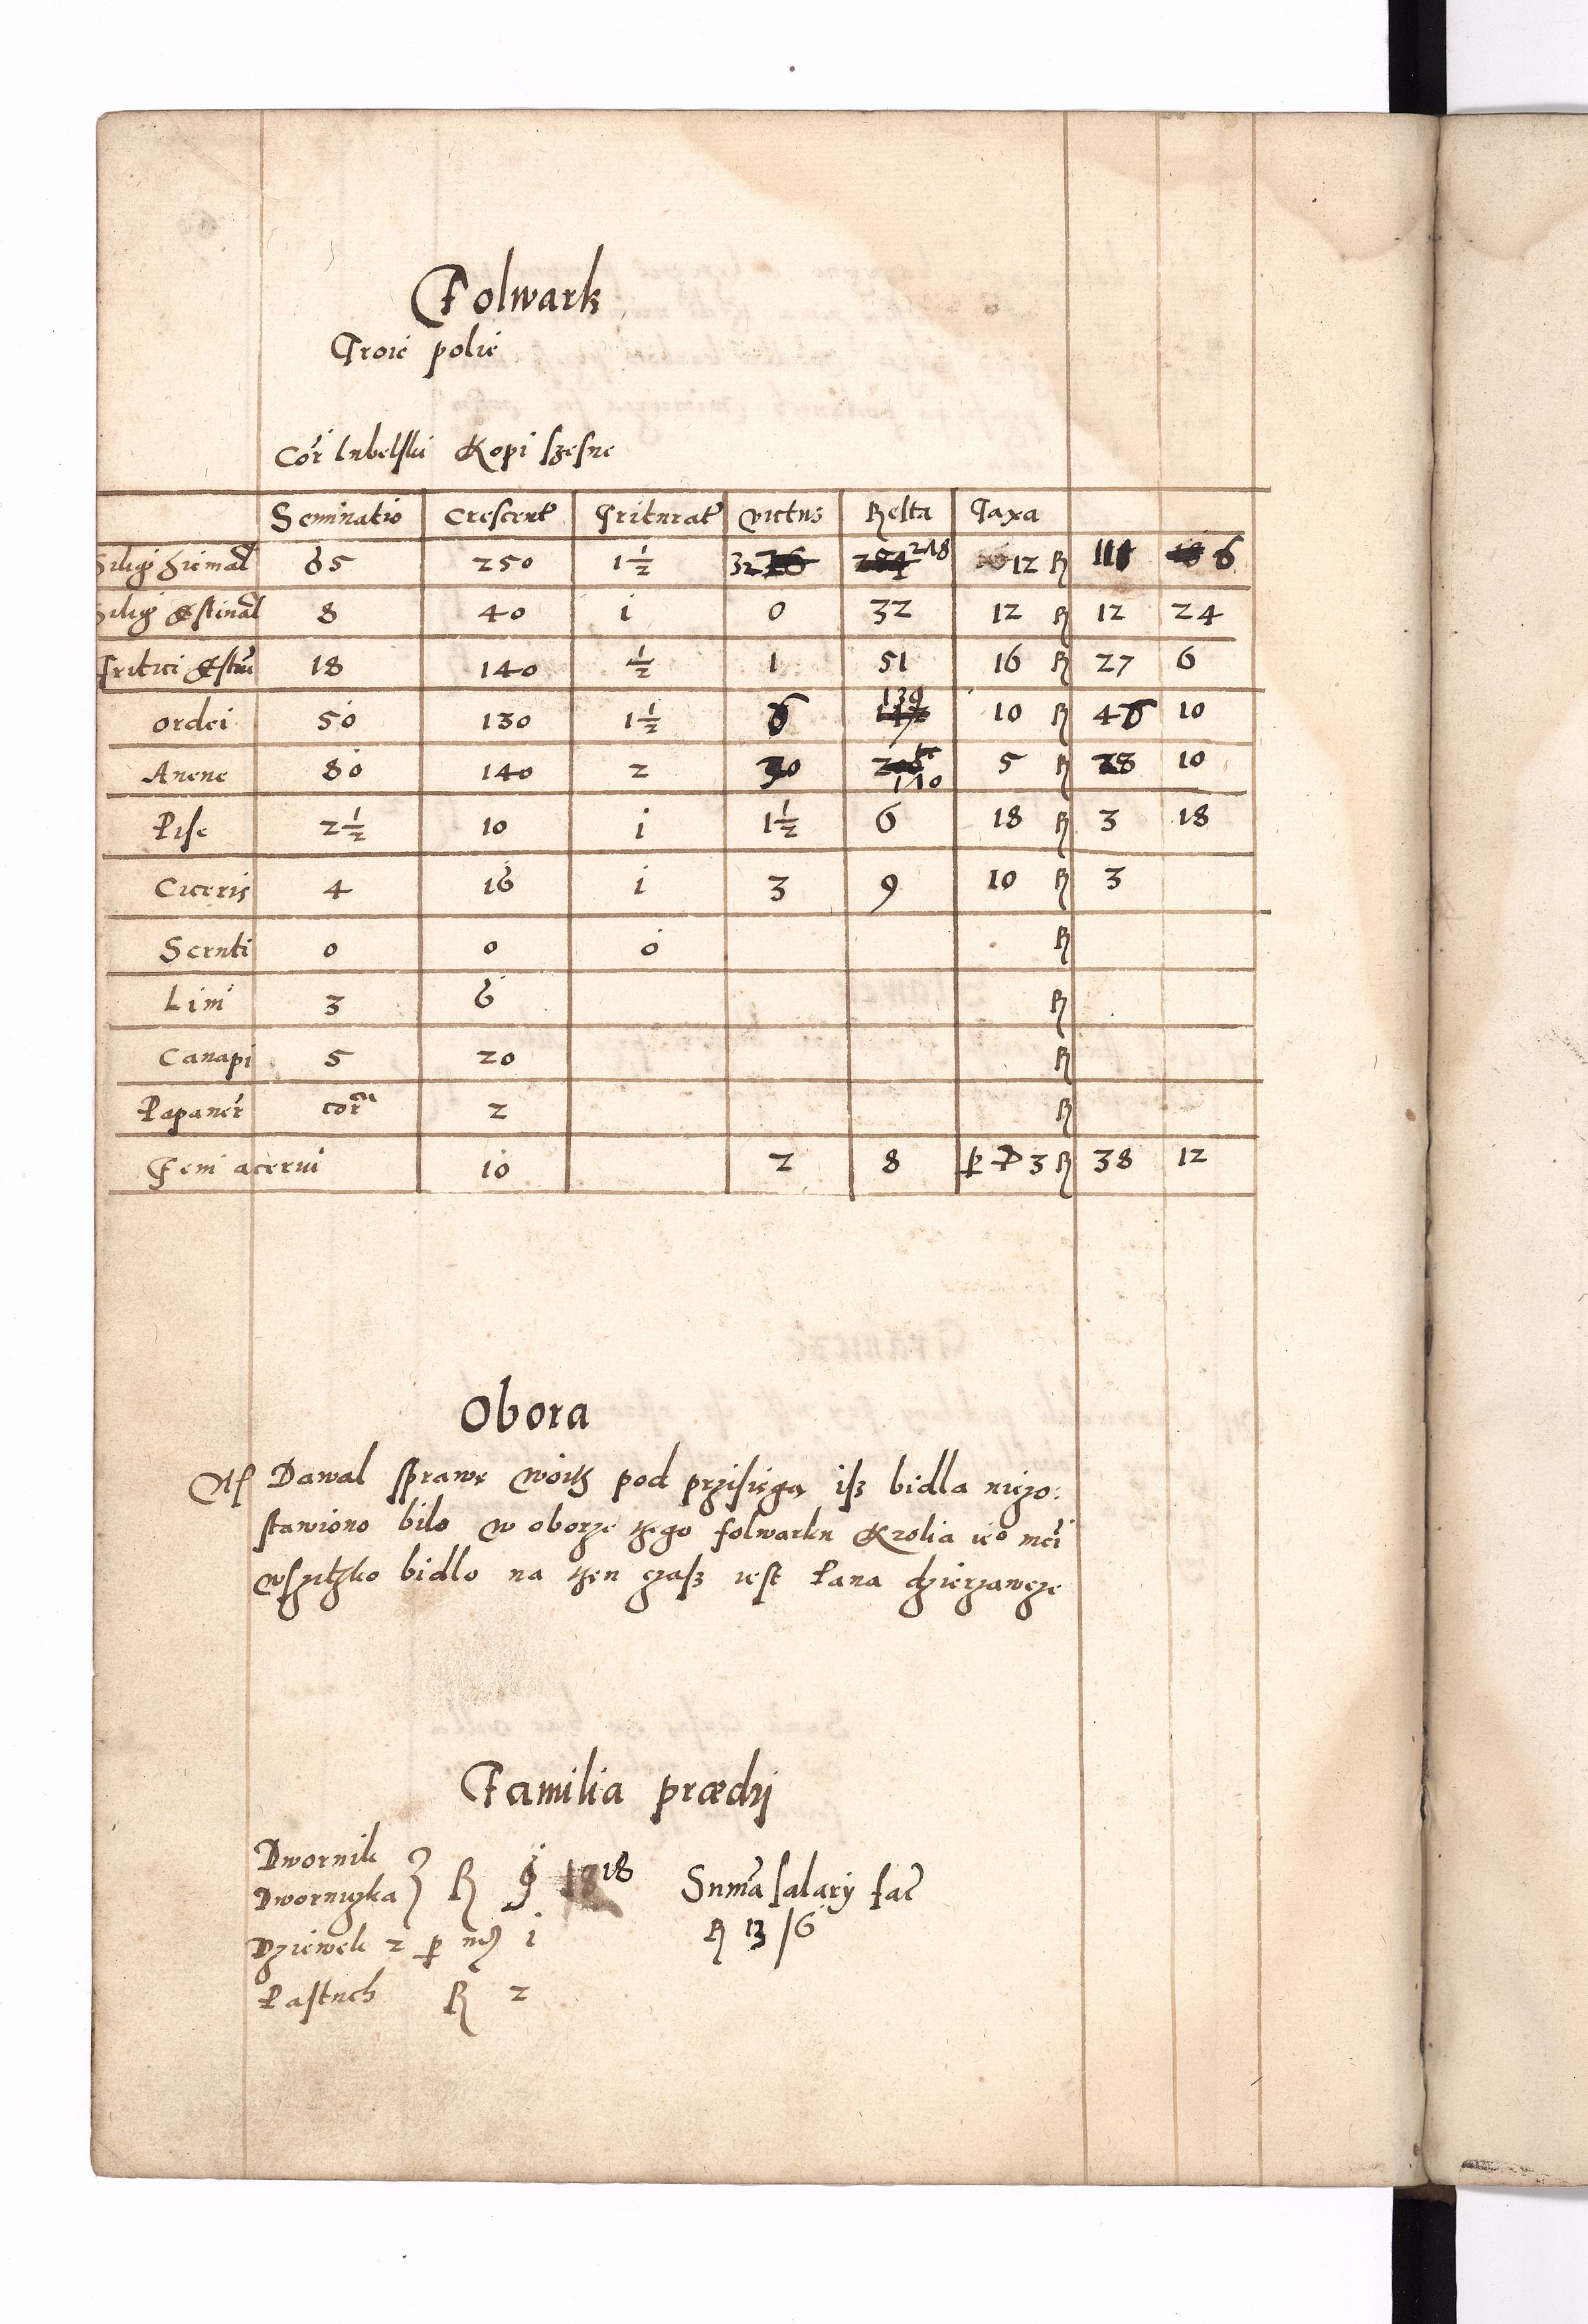 Folwark
Troie polie
Cor lubelski Kopi szesne
Seminatio Crescent Triturat victus Resta Taxa
Siligi Hiemal 65 250 1½ 32 218 12 R 111 6
Silig Estival 8 40 i 0 32 12 R 12 24
Tritici Estiui 18 140 ½ 1 51 16 R 27 6
ordei 50 130 1½ 6 139 10 R 46 10
Auene 80 140 2 30 170 5 R 28 10
Pise 2½ 10 i 1½ 6 18 R 3 18
Ciceris 4 16 i 3 9 10 R 3
0 0 0 R
Lini 3 6 R
Canapi 5 20 R
Papauer cor 2 R
Feni acerui 10 2 8 3 R 38 12
Obora
Dawal sprawę woith pod przisiegą isz bidla niezo:
stawiono bilo w oborze tego folwarku Krolia ieo mci
wszitko bidlo na ten czasz iest Pana dzierzawcze
Familia prædij
Dwornik
Dworniczka R 9 18 Suma salary fac
R 13/6
Dziewek 2 i
Pastuch R 2